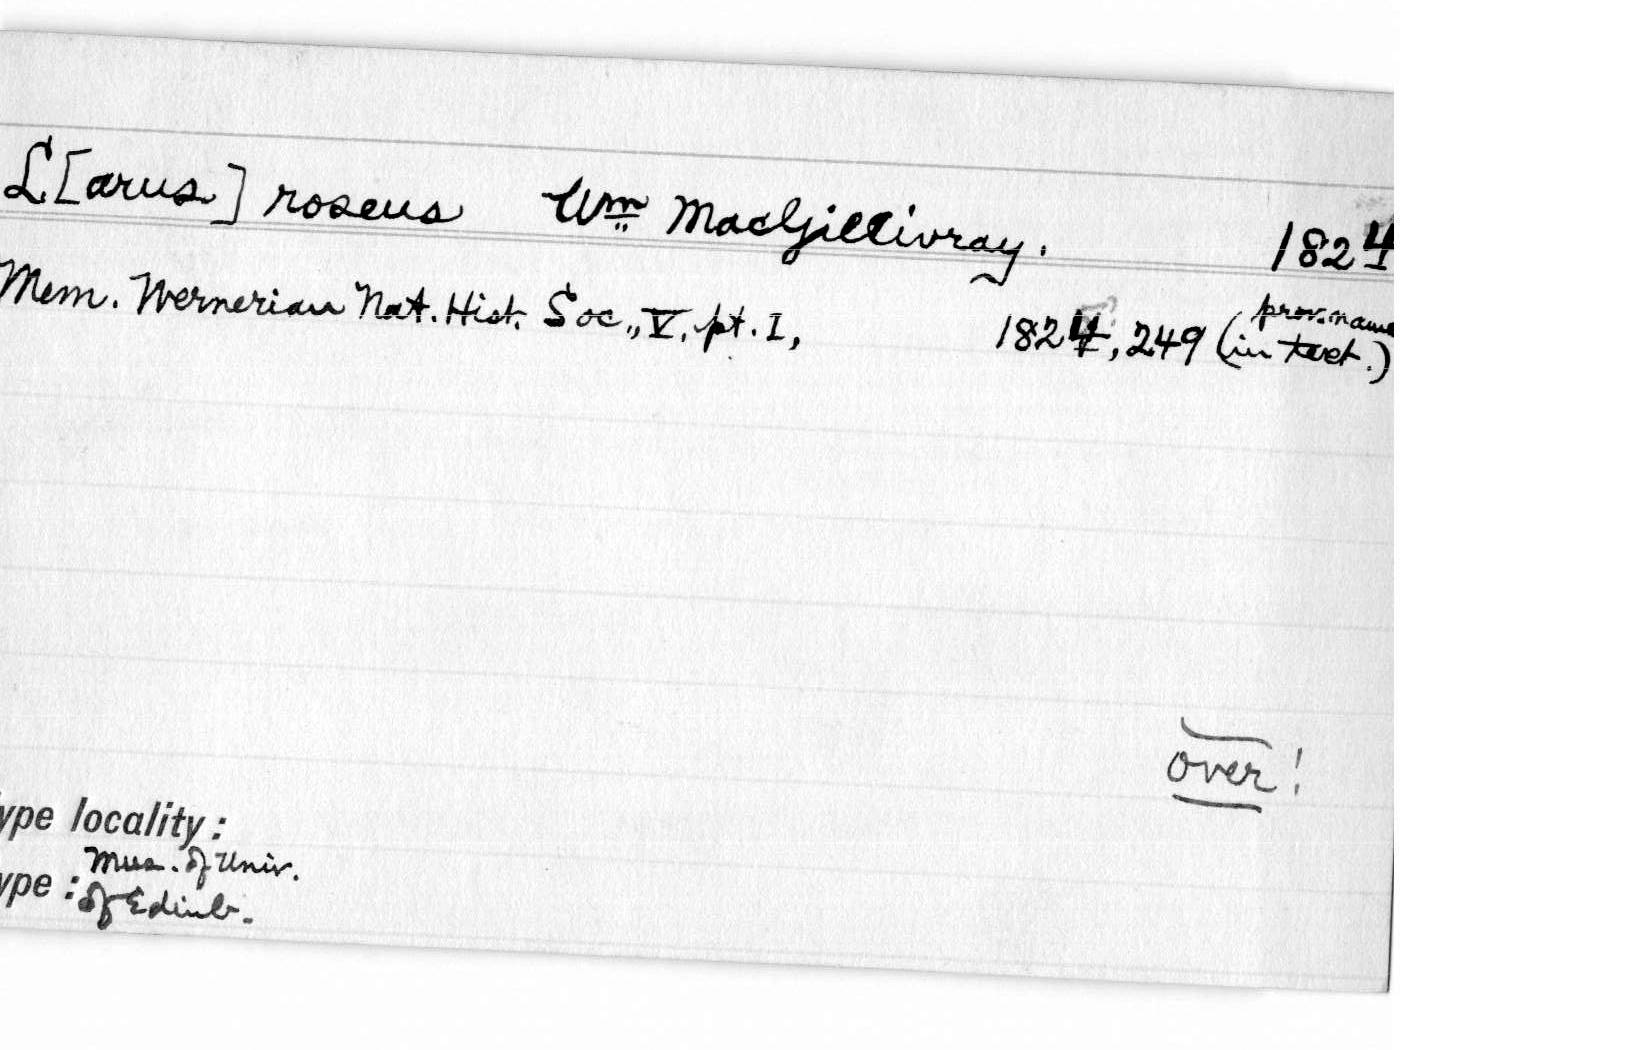 L[arus] roseus Wm MacGillivray. 1824
Mem. Wernerian Nat. Hist. Soc., V, pt. I, 1824, 249 (prov. name
in text.)
over!
ype locality:
Mus. of Univ.
ype: of Edinb.